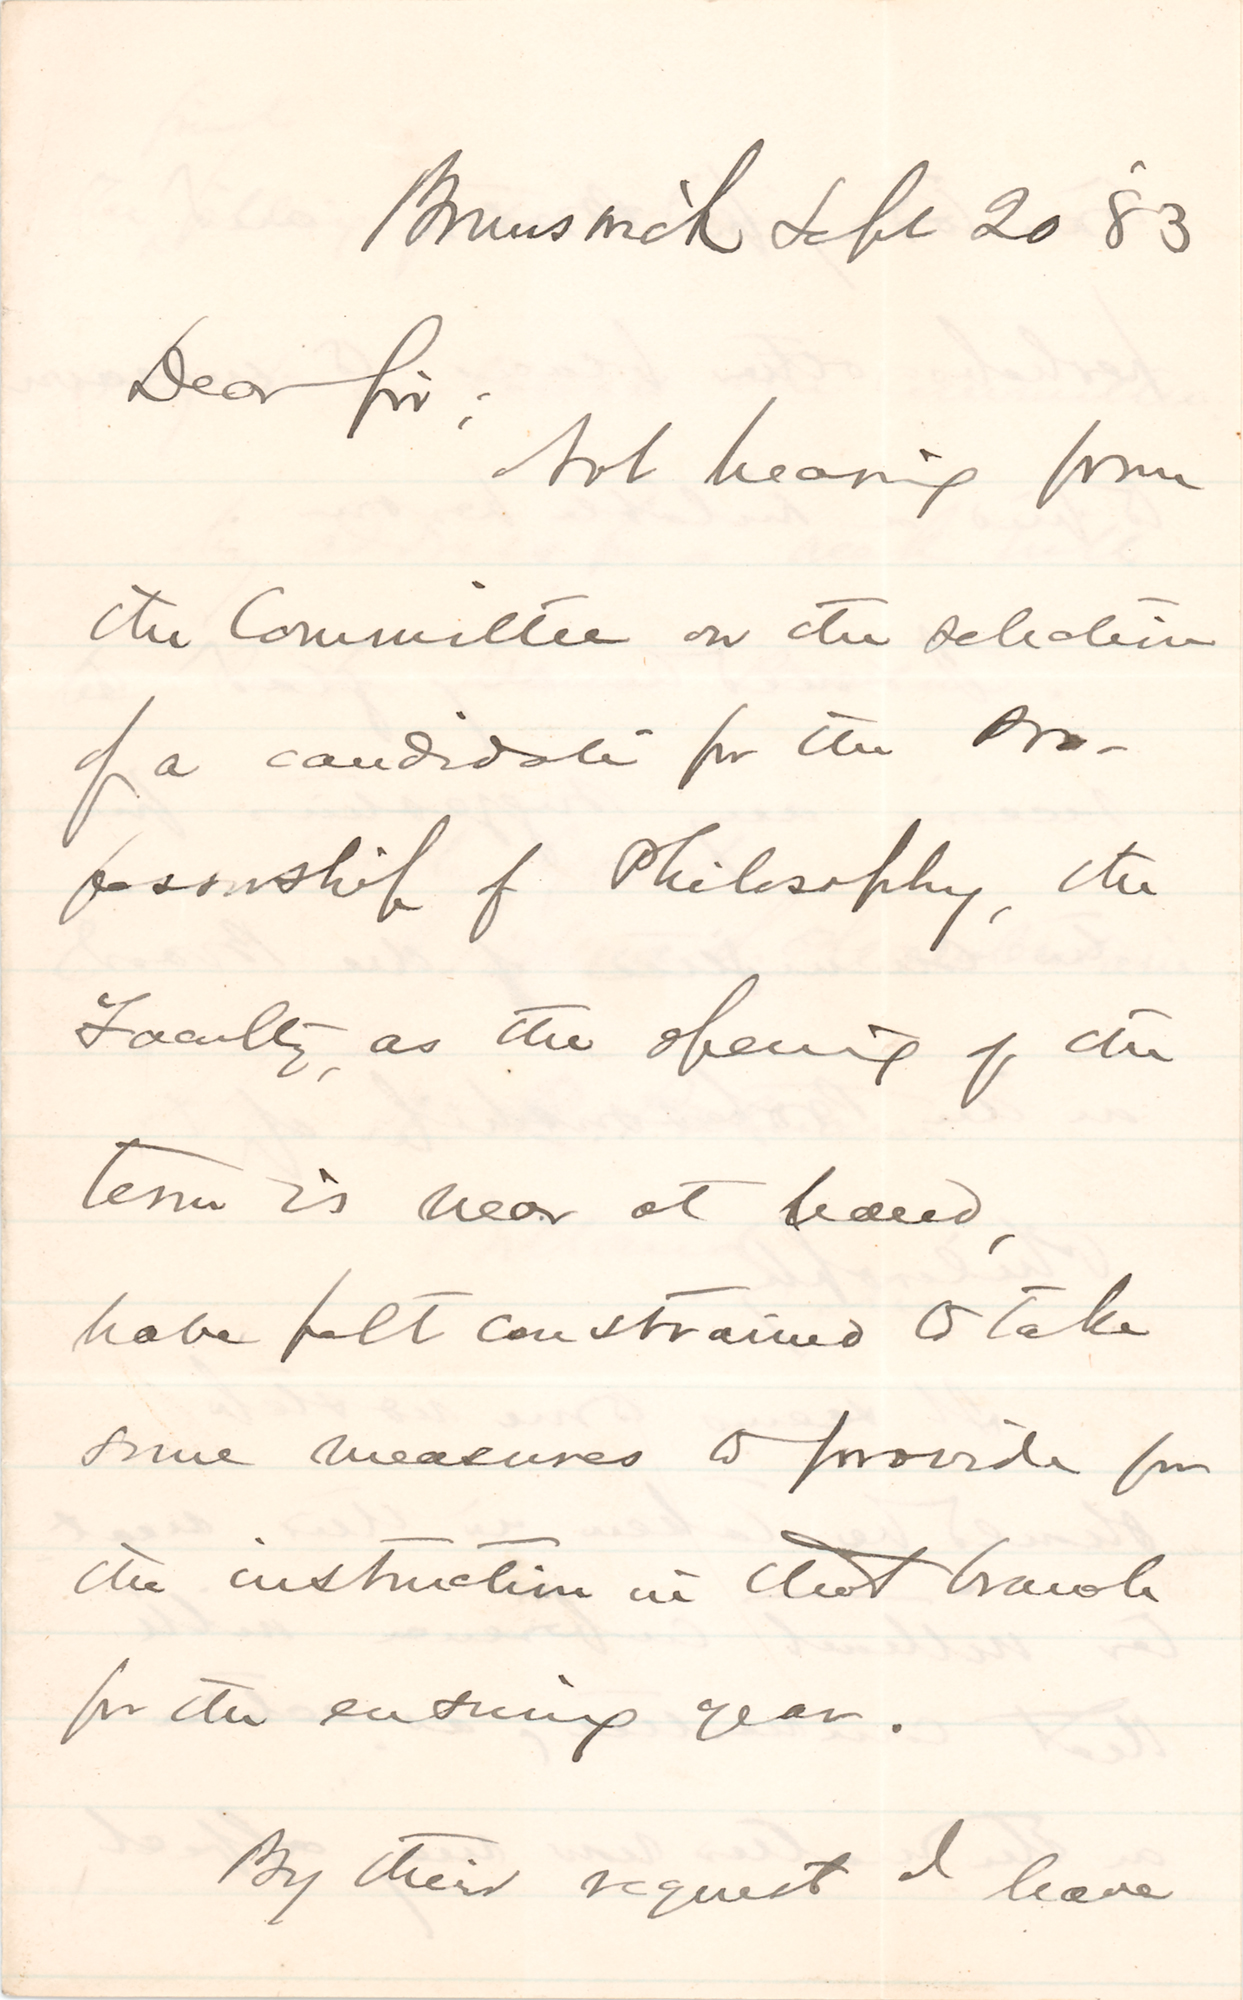 Brunswick Sept 20 '83
Dear Sir;
Not hearing from
the Committee on the selection
of a candidate for the Pro-
fessorship of Philosophy, the
Faculty, as the opening of the
term is near at hand,
have felt constrained to take
some measures to provide for
the instruction in that branch
for the ensuing year.
By their request I have